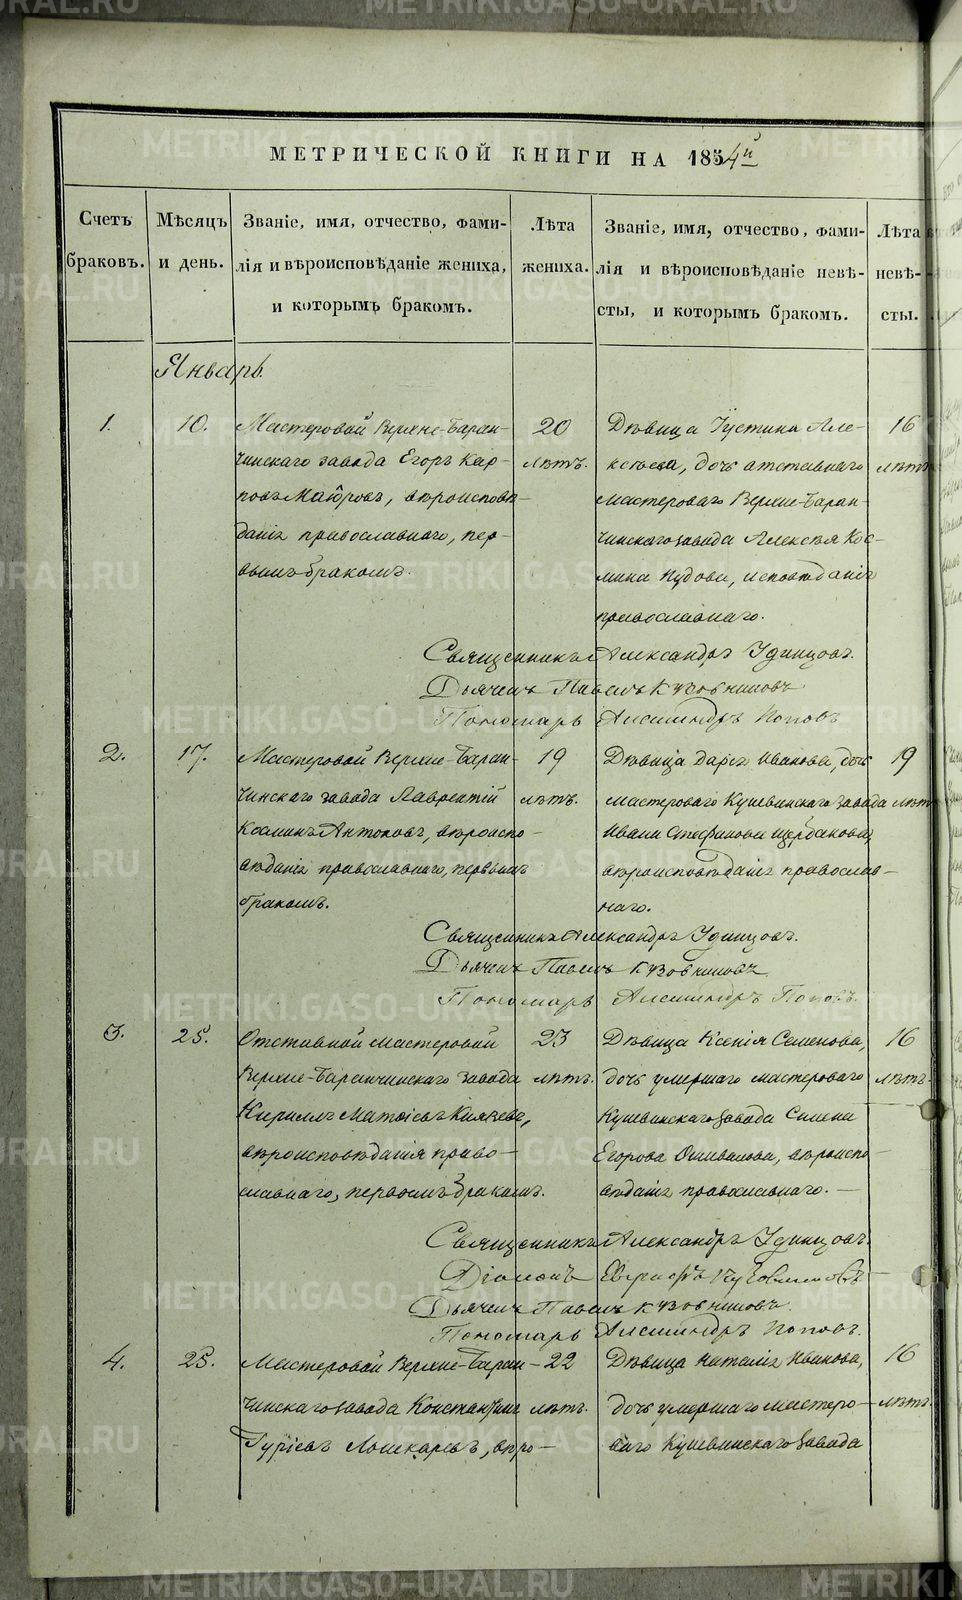 МЕТРИЧЕСКОЙ КНИГИ НА 1854й
Счетъ браковъ.
Мѣсяцъ и день.
Званіе, имя, отчество, фами-
лія и вѣроисповѣданіе жениха,
и которымъ бракомъ.
Лѣта
жениха.
Званіе, имя, отчество, фами-
лія и вѣроисповѣданіе невѣ-
сты, и которымъ бракомъ.
Лѣта
невѣ-
сты.
Январь
1.
10.
Мастеровой Верхне-Баран-
чинскаго завода Егоръ Кар-
повъ Маіоровъ, вѣроисповѣ-
данія православнаго, пер-
вымъ бракомъ.
20
лѣтъ.
Дѣвица Іустина Але-
ксѣева, дочь отставнаго
мастероваго Верхне-Баран-
чинскаго завода Алексѣя Кос-
мина исповѣданія
православнаго.
16
лѣтъ
Священникъ Александръ Удинцовъ.
Дьячекъ Павелъ Кузовниковъ
Пономарь Александръ Поповъ
2.
17.
Мастеровой Верхне-Баран-
чинскаго завода Лаврентій
Косминъ Антоновъ, вѣроиспо-
вѣданія православнаго, первымъ
бракомъ.
19
лѣтъ.
Дѣвица Дарья Иванова, дочь
мастероваго Кушвинскаго завода
Ивана Стефанова Щербакова,
вѣроисповѣданія православ-
наго.
19
лѣтъ
Священникъ Александръ Удинцовъ.
Дьячекъ Павелъ Кузовниковъ
Пономарь Александръ Поповъ.
3.
25.
Отставной мастеровой
Верхне-Баранчинскаго завода
Кириллъ Матвіевъ Князевъ,
вѣроисповѣданія право-
славнаго, первымъ бракомъ.
23
лѣтъ.
Дѣвица Ксенія Семенова,
дочь умершаго мастероваго
Кушвинскаго завода Симена
Егорова вѣроиспо-
вѣданія православнаго.
16
лѣтъ.
Священникъ Александръ Удинцовъ.
Діаконъ Кузовниковъ
Дьячекъ Павелъ Кузовниковъ.
Пономарь Александръ Поповъ.
4.
25.
Мастеровой Верхне-Баран-
чинскаго завода Константинъ
Гуріевъ Лошкаревъ, вѣро-
22
лѣтъ.
Дѣвица Наталія Иванова,
дочь умершаго мастеро-
ваго Кушвинскаго завода
16
лѣтъ.
METRIKI.GASO-URAL.RU